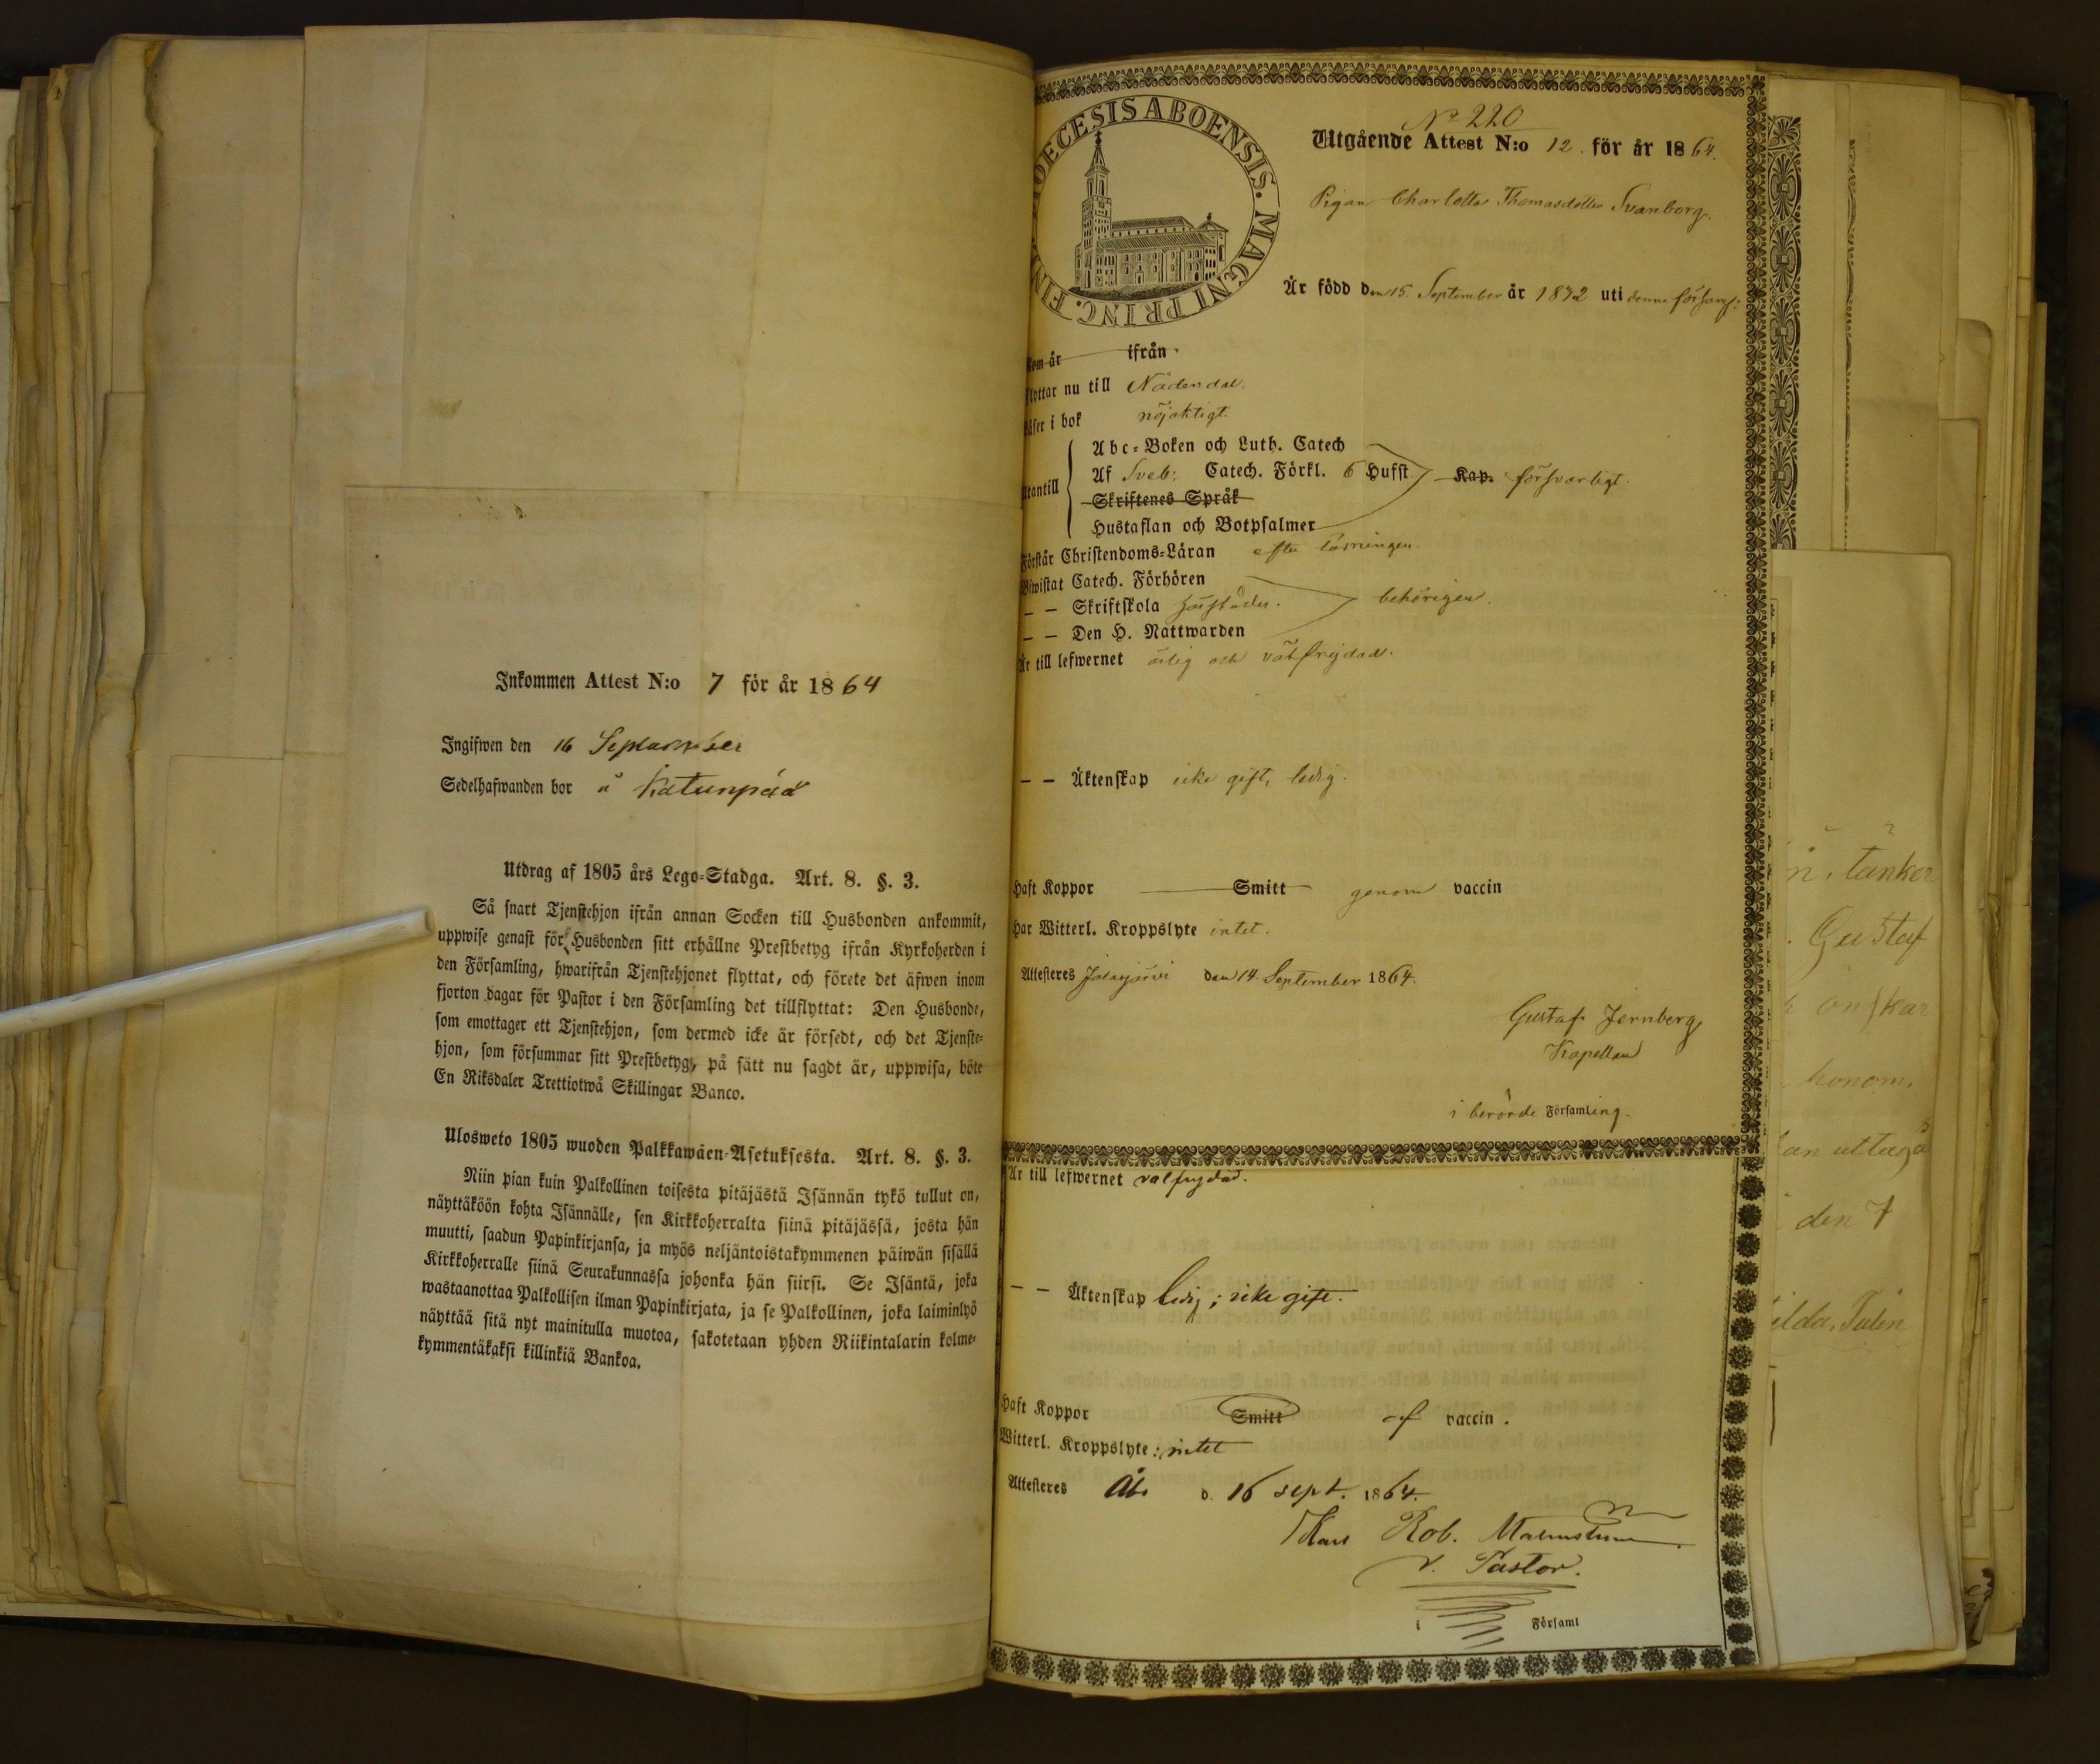 Inkommen Attest N:o 7 för år 1864
Ingifwen den 16 September
Sedelhafwanden bor å Katunpää
Utdrag af 1805 års Lego-Stadga. Art. 8. §. 3.
Så snart Tjenstehjon ifrån annan Socken till Husbonden ankommit,
uppwise genast för Husbonden sitt erhållne Prestbetyg ifrån Kyrkoherden i
den Församling, hwarifrån Tjenstehjonet flyttat, och förete det äfwen inom
fjorton dagar för Pastor i den Församling det tillflyttat: Den Husbonde,
som emottager ett Tjenstehjon, som dermed icke är försedt, och det Tjenste-
hjon, som försummar sitt Prestbetyg, på sätt nu sagdt är, uppwisa, böte
En Riksdaler Trettiotwå Skillingar Banco.
Ulosweto 1805 wuoden Palkkawäen-Asetuksesta. Art. 8. §. 3.
Niin pian kuin Palkollinen toisesta pitäjästä Isännän tykö tullut on,
näyttäköön kohta Isännälle, sen Kirkkoherralta siinä pitäjässä, josta hän
muutti, saadun Papinkirjansa, ja myös neljäntoistakymmenen päiwän sisällä
Kirkkoherralle siinä Seurakunnassa johonka hän siirsi. Se Isäntä, joka
wastaanottaa Palkollisen ilman Papinkirjata, ja se Palkollinen, joka laiminlyö
näyttää sitä nyt mainitulla muotoa, sakotetaan yhden Riikintalarin kolme-
kymmentäkaksi killinkiä Bankoa.
DIOECESIS ABOENSIS. MAGNI PRINC. FIN
N° 220
Utgående Attest N:o 12. för år 1864.
Pigan Charlotta Thomasdotter Svanborg.
Är född den 15 September år 1832 uti denna förs
Kom år ifrån
flyttar nu till Nådendal.
Läser i bok nöjaktigt.
Utantill
Abc-Boken och Luth. Catech
Af Sveb: Catech. Förkl. 6 Hufst Kap. försvarligt.
Skriftenes Språk
Hustaflan och Botpsalmer
Förstår Christendoms-Läran efter
Biwistat Catech. Förhören
— — Skriftskola behörigen.
— — Den H. Nattwarden
Är till lefwernet ärlig och välfrejdad.
— — Äktenskap icke gift, ledig.
Haft Koppor Smitt genom vaccin
Har Witterl. Kroppslyte intet.
Attesteres den 14 September 1864.
Gustaf Jernberg
Kapellan
i berörde Församling.
Är till lefwernet välfrejdad.
— — Äktenskap ledig; icke gift.
Haft Koppor Smitt af vaccin.
Witterl. Kroppslyte: intet
Attesteres Åbo d. 16 sept. 1864.
Karl Rob. Malmström
v. Pastor.
i Församl
tänker
Gustaf
önskar
honom.
uttaga
den 7